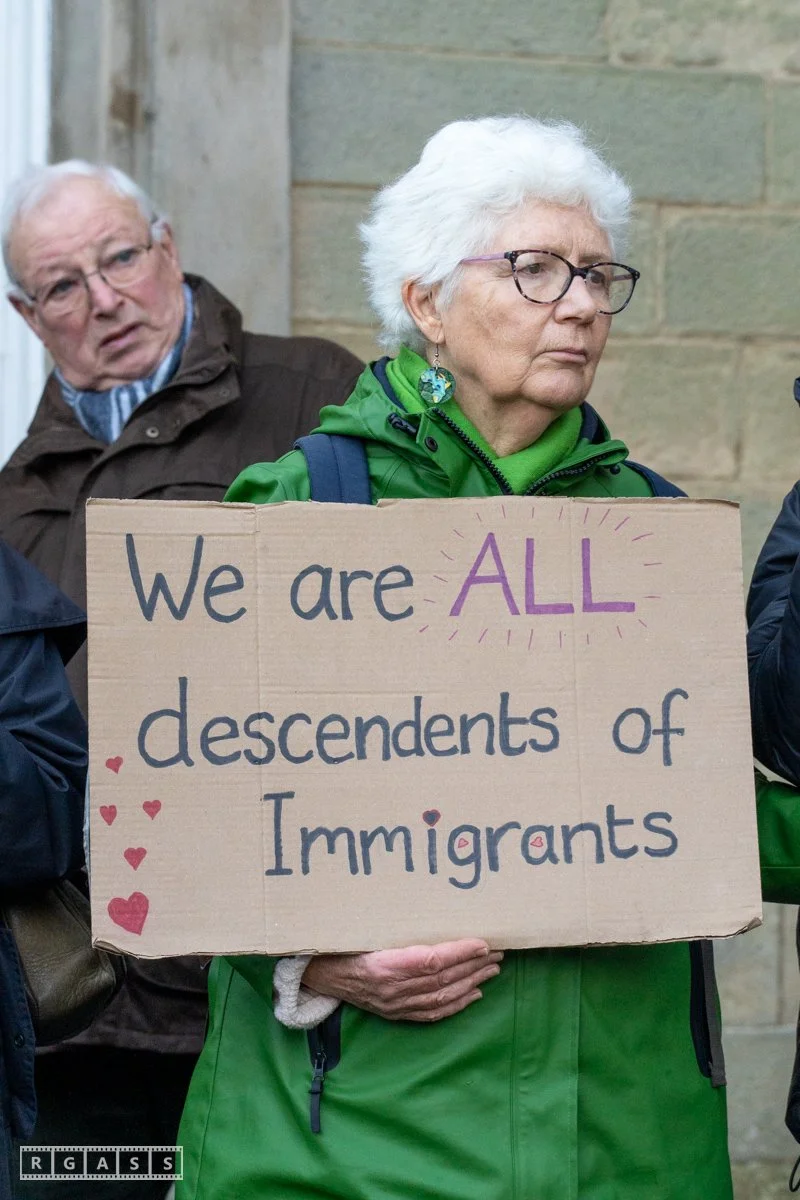 We are ALL
descendents of
Immigrants
RGASS